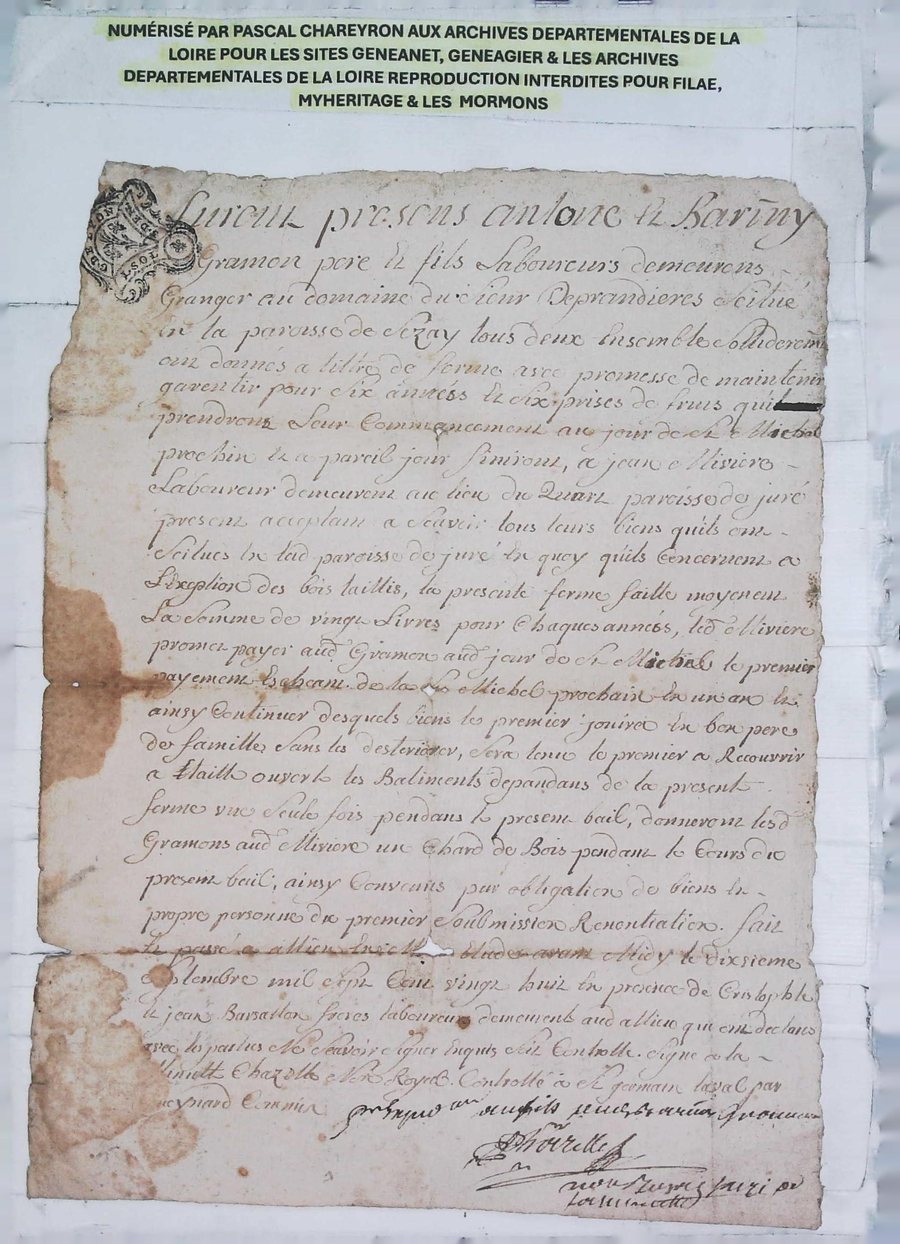 NUMÉRISÉ PAR PASCAL CHAREYRON AUX ARCHIVES DEPARTEMENTALES DE LA
LOIRE POUR LES SITES GENEANET, GENEAGIER & LES ARCHIVES
DEPARTEMENTALES DE LA LOIRE REPRODUCTION INTERDITES POUR FILAE,
MYHERITAGE & LES MORMONS
furent presens antoine et Bartmy
Gramon pere et fils Laboureurs demeurens
Granger au domaine du sieur Deprandieres scitué
en la paroisse de Sezay tous deux Ensemble sollideremt
ont donnés a tiltre de ferme avec promesse de maintenir
garentir pour six années et six prises de fruis qui
prendrons Leur Commancement au jour de St Michel
prochin et a pareil jour finiront, a jean Miviere
Laboureur demeurent au lieu du Quart paroisse de juré
present acceptant a scavoir tous leurs biens quils ont
scitues en lad paroisse de juré En quoy quils Concernent a
L'Exception des bois taillis, la presente ferme faitte moyenent
La somme de vingt Livres pour Chaques années, led Miviere
promet payer aud Gramon aud jour de St Michel le premier
payement Escheant de la St Michel prochain En un an et
ainsy Continuer desquels biens le premier jouira En bon pere
de famille sans les desteriorer, sera tenu le premier a Recouvrir
a taille ouverte les Batiments depandans de la present
ferme une seule fois pendans le present bail, donneront lesd
Gramons aud Miviere un Chard de Bois pendant le Cours du
present bail, ainsy Convenus par obligation de biens et
propre personne du premier soubmission Renontiation. fait
et passé a allieu Etude avant Midy le dixsieme
septembre mil sept Cent vingt huit En presence de Cristophle
et jean Barsallon freres laboureurs demeurents aud allieu qui ont declaré
avec les parties Ne scavoir signer Enquis soit Controllé. signé a la
minutte Chazelle Nore Royal. Controllé a St germain laval par
Commis